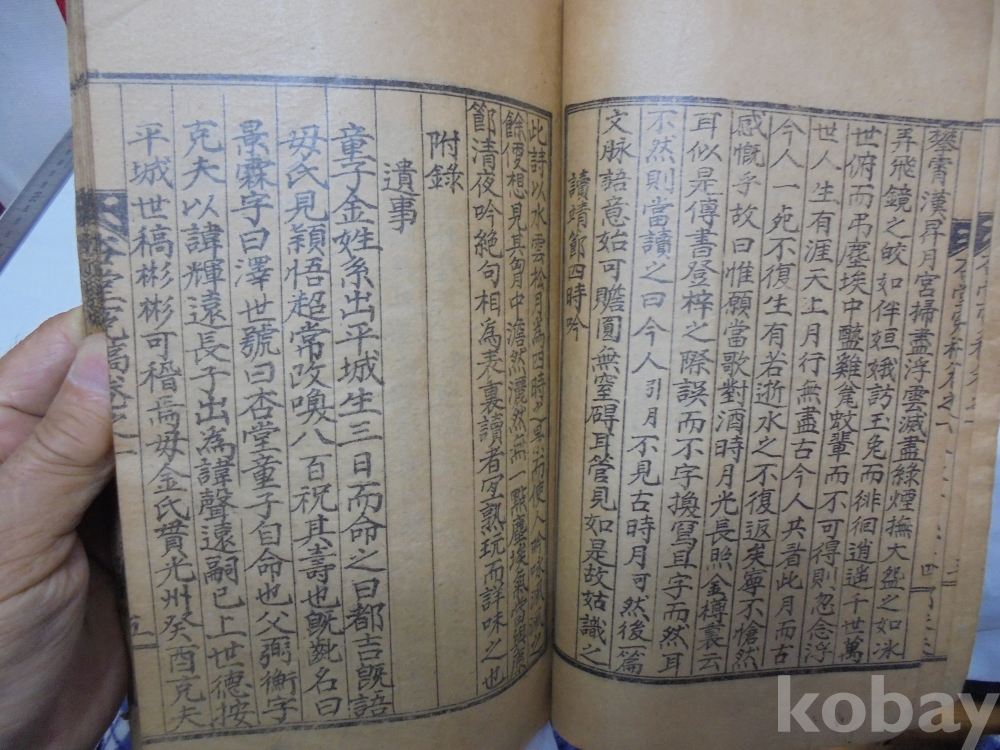 擧霄漢昇月宮掃盡浮雲滅盡綠煙撫大盤之如氷
弄飛鏡之皎如伴姮娥訪玉兎而徘徊逍遥千世萬
世俯而弔塵埃中醯雞瓮蚊輩而不可得則忽念浮
世人生有涯天上月行無盡古今人共看此月而古
今人一死不復生有若逝水之不復返矣寧不愴然
感慨乎故曰惟願當歌對酒時月光長照金樽裏云
耳似是傳書登梓之際誤而不字換寫且字而然耳
不然則當讀之曰今人引月不見古時月可然後篇
文脉語意始可贍圓無窒碍耳管見如是故姑識之
讀靖節四時吟
此詩以水雲松月爲四時興而使人吟咏諷誦之
餘僾想見其胷中澹然灑然無一點塵埃氣
節清夜吟絶句相爲表裏讀者宜熟玩而詳味之也
附錄
遺事
童子金姓系出平城生三日而命之曰都吉旣語
母氏見穎悟超常改喚八百祝其壽也旣齔名曰
景霖字曰澤世號曰杏堂童子自命也父弼衡字
克夫以諱輝遠長子出爲諱聲遠嗣已上世德按
平城世稿彬彬可稽焉母金氏貫光州癸酉克夫
杏堂
五
四
kobay